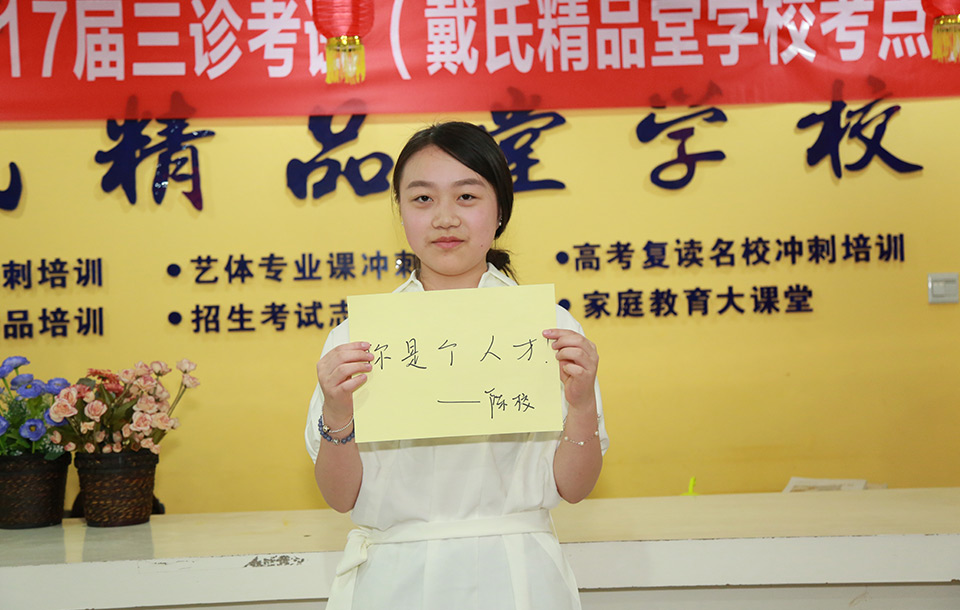 17届三诊考试（戴氏精品堂学校考点
精品堂学校
刺培训
•艺体专业课冲刺
•高考复读名校冲刺培训
品培训
•招生考试志
•家庭教育大课堂
你是个人才!
——陈校